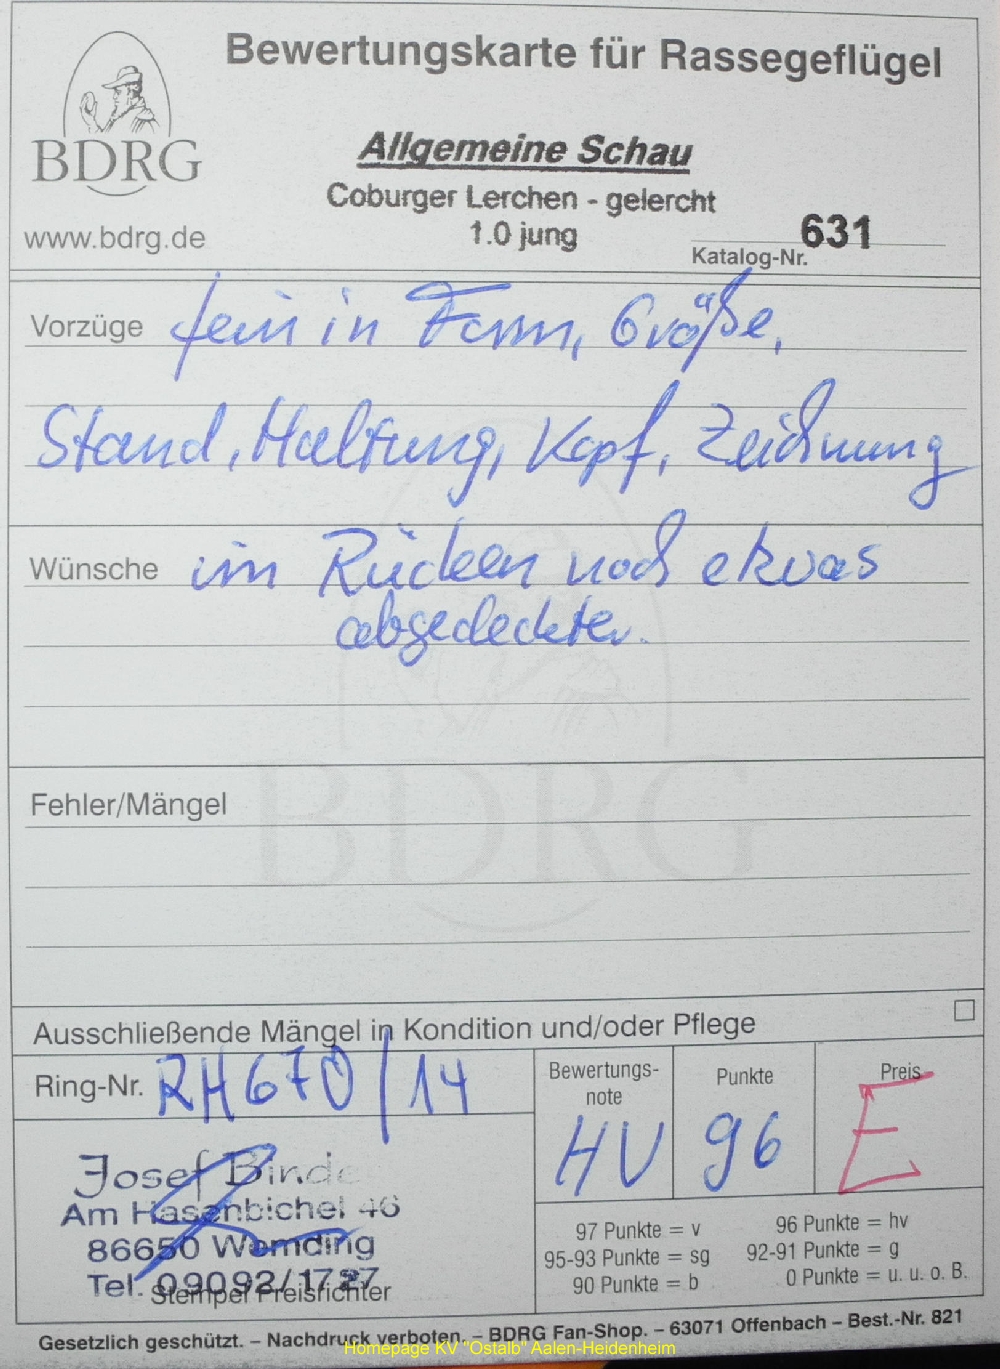 Bewertungskarte für Rassegeflügel
BDRG
www.bdrg.de
Allgemeine Schau
Coburger Lerchen - gelercht
1.0 jung
Katalog-Nr. 631
Vorzüge fein in Form, Größe,
Stand, Haltung, Kopf, Zeichnung
Wünsche im Rücken noch etwas
abgedeckter.
BDRG
Fehler/Mängel
Ausschließende Mängel in Kondition und/oder Pflege
Ring-Nr. RH670/14
Bewertungs-
note
HV
Punkte
96
Preis
E
Josef Binde
Am Hasenbichel 46
86650 Wemding
Tel. 09092/1727
Stempel Preisrichter
97 Punkte = v
96 Punkte = hv
95-93 Punkte = sg
92-91 Punkte = g
90 Punkte = b
0 Punkte = u. u. o. B.
Gesetzlich geschützt. – Nachdruck verboten. – BDRG Fan-Shop. – 63071 Offenbach – Best.-Nr. 821
Homepage KV "Ostalb" Aalen-Heidenheim